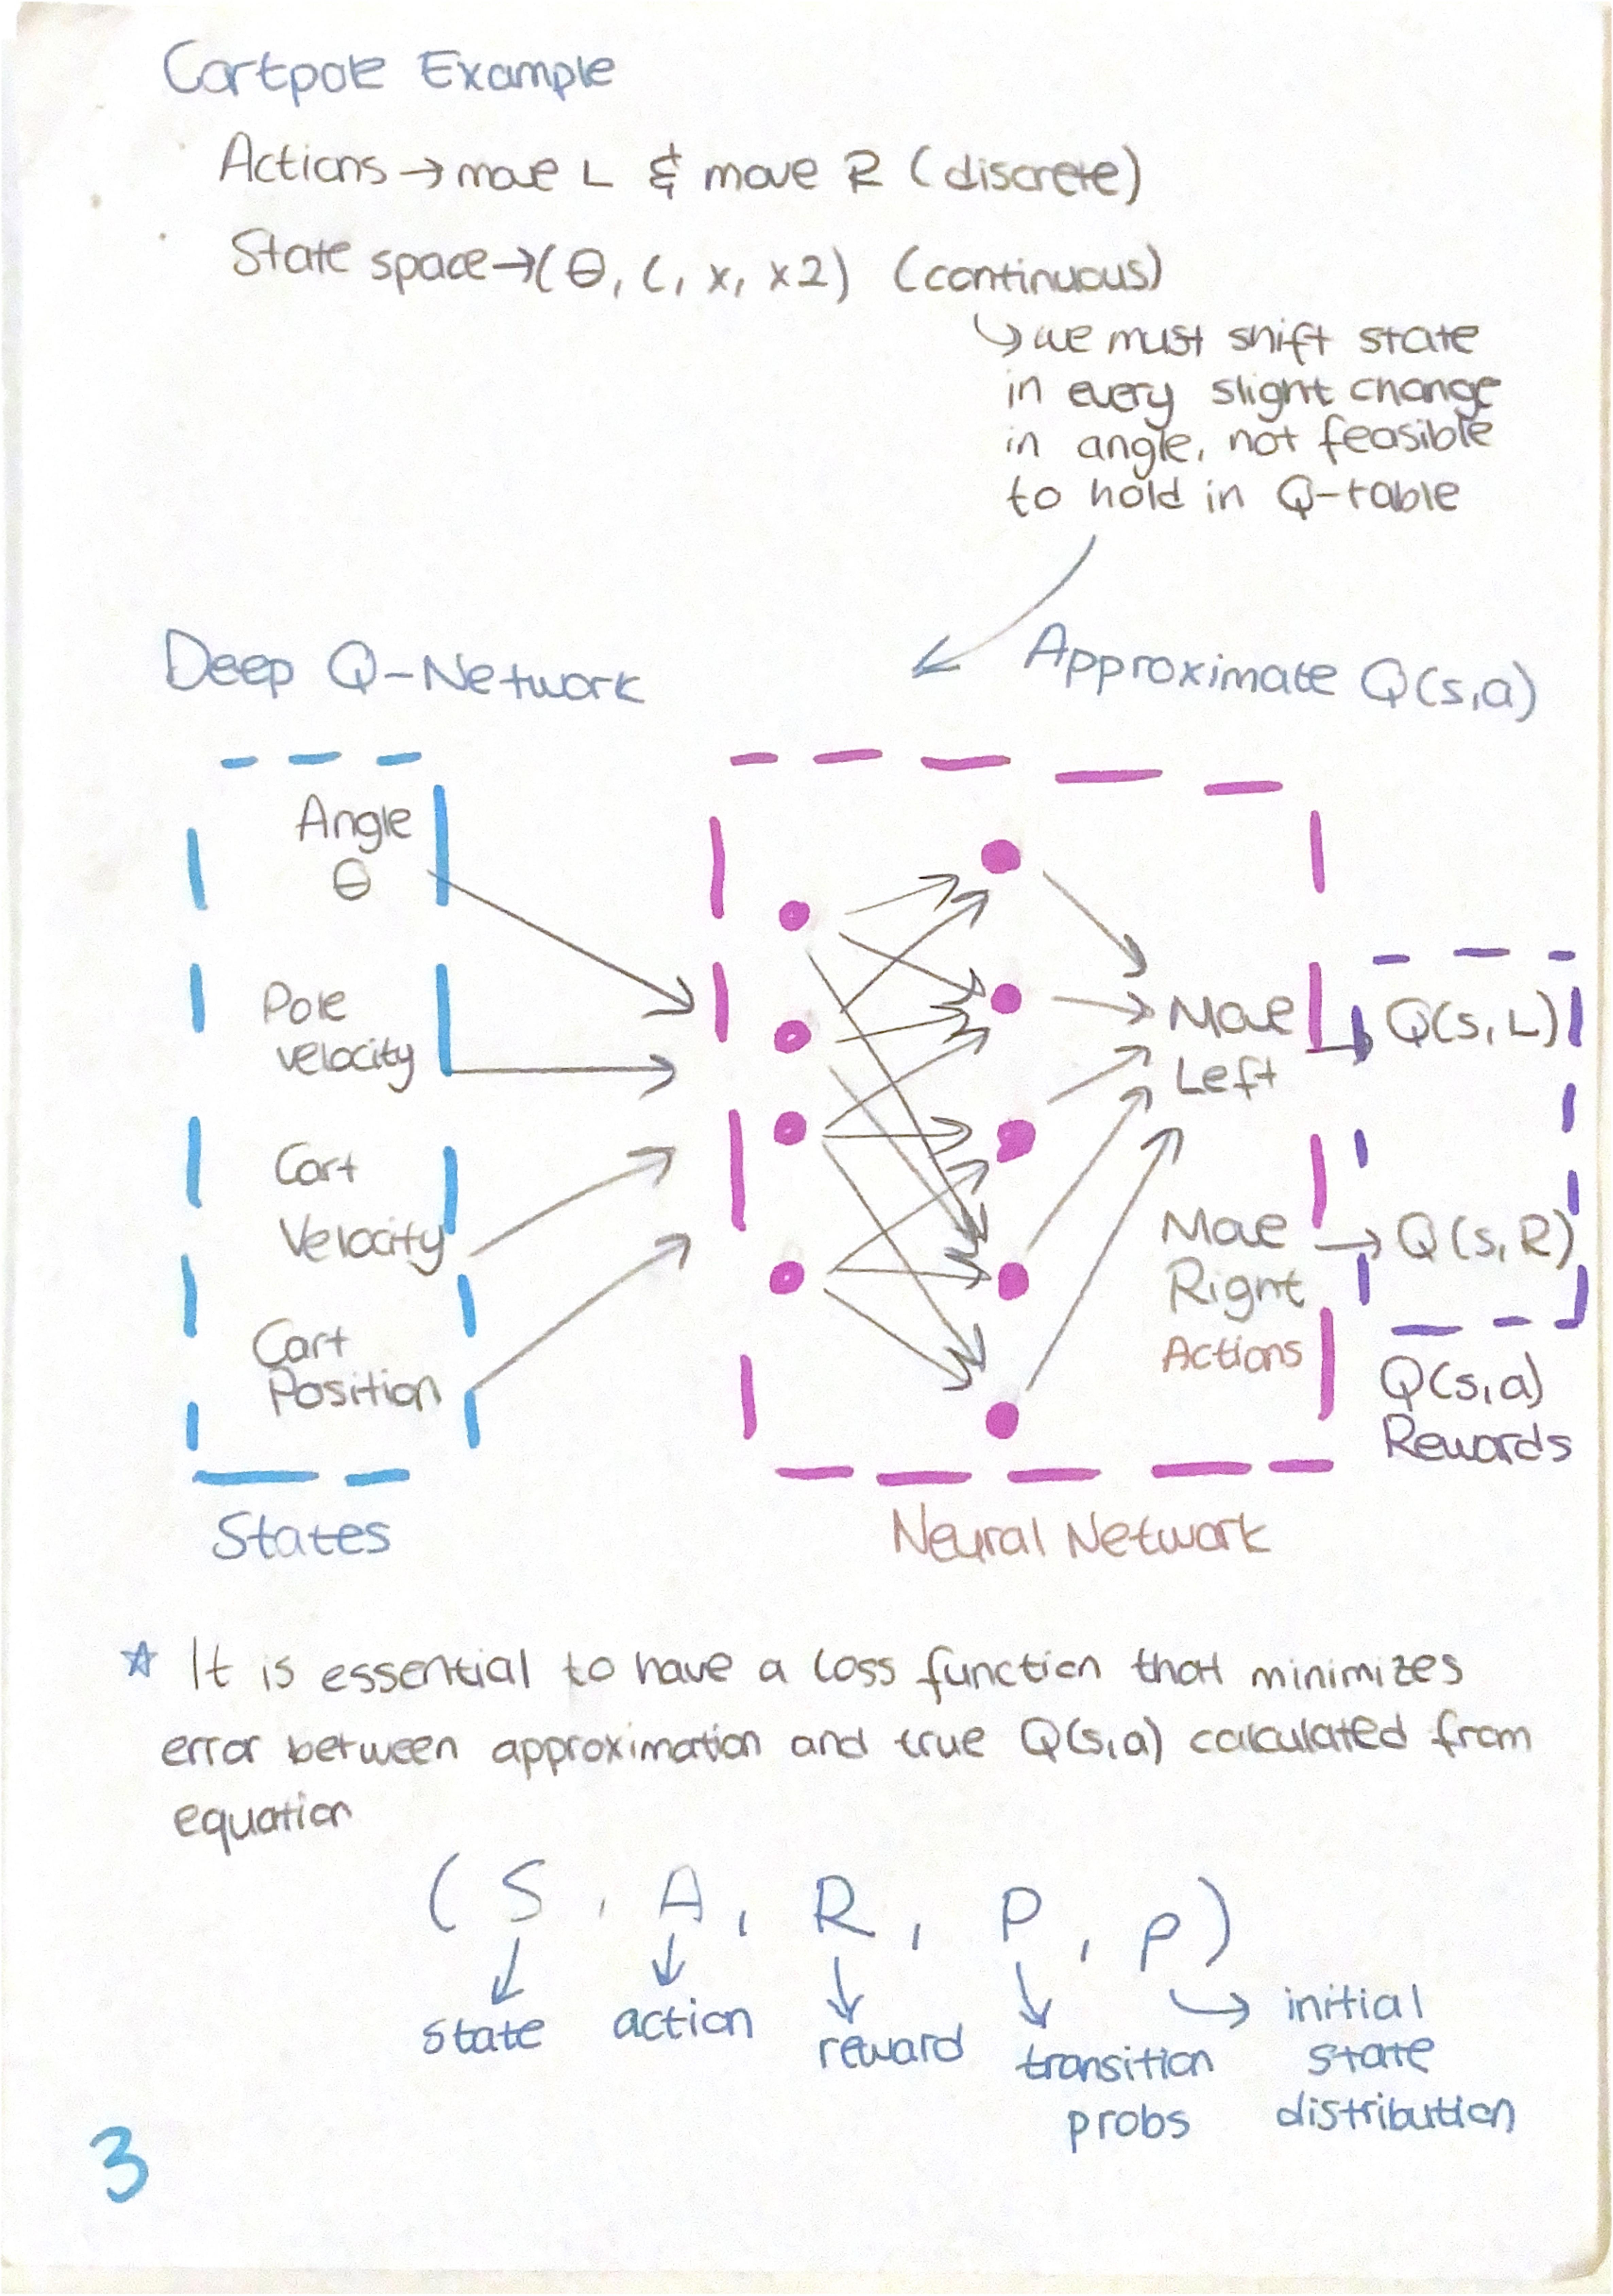 Cartpole Example
Actions → move L & move R (discrete)
State space → (θ, (, x, x2) (continuous)
↳ we must shift state
in every slight change
in angle, not feasible
to hold in Q-table
Deep Q-Network
Approximate Q(s,a)
Angle
θ
Pole
velocity
Cart
Velocity
Cart
Position
States
Move
Left
Move
Right
Actions
Neural Network
Q(s,L)
Q(s,R)
Q(s,a)
Rewards
☆ It is essential to have a loss function that minimizes
error between approximation and true Q(s,a) calculated from
equation
(S, A, R, P, ρ)
state
action
reward
transition
probs
initial
state
distribution
3